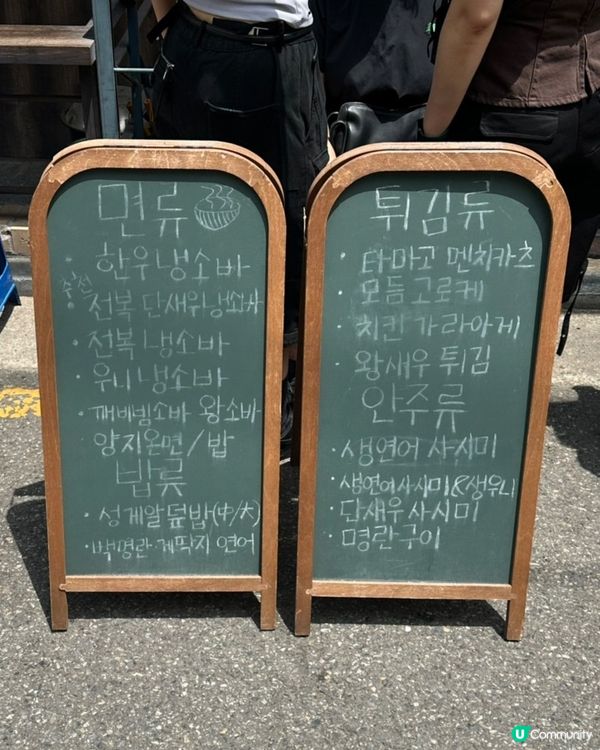 면류
· 한우냉소바
추천
· 전복 단새우냉소바
· 전복 냉소바
· 우니냉소바
· 깨비빔소바 왕소바
· 양지온면/밥
밥류
· 성게알덮밥(中/大)
· 백명란 게딱지 연어
튀김류
· 타마고 멘치카츠
· 모듬고로케
· 치킨 가라아게
· 왕새우 튀김
안주류
· 생연어 사시미
· 생연어사시미&생우니
· 단새우사시미
· 명란구이
U Community